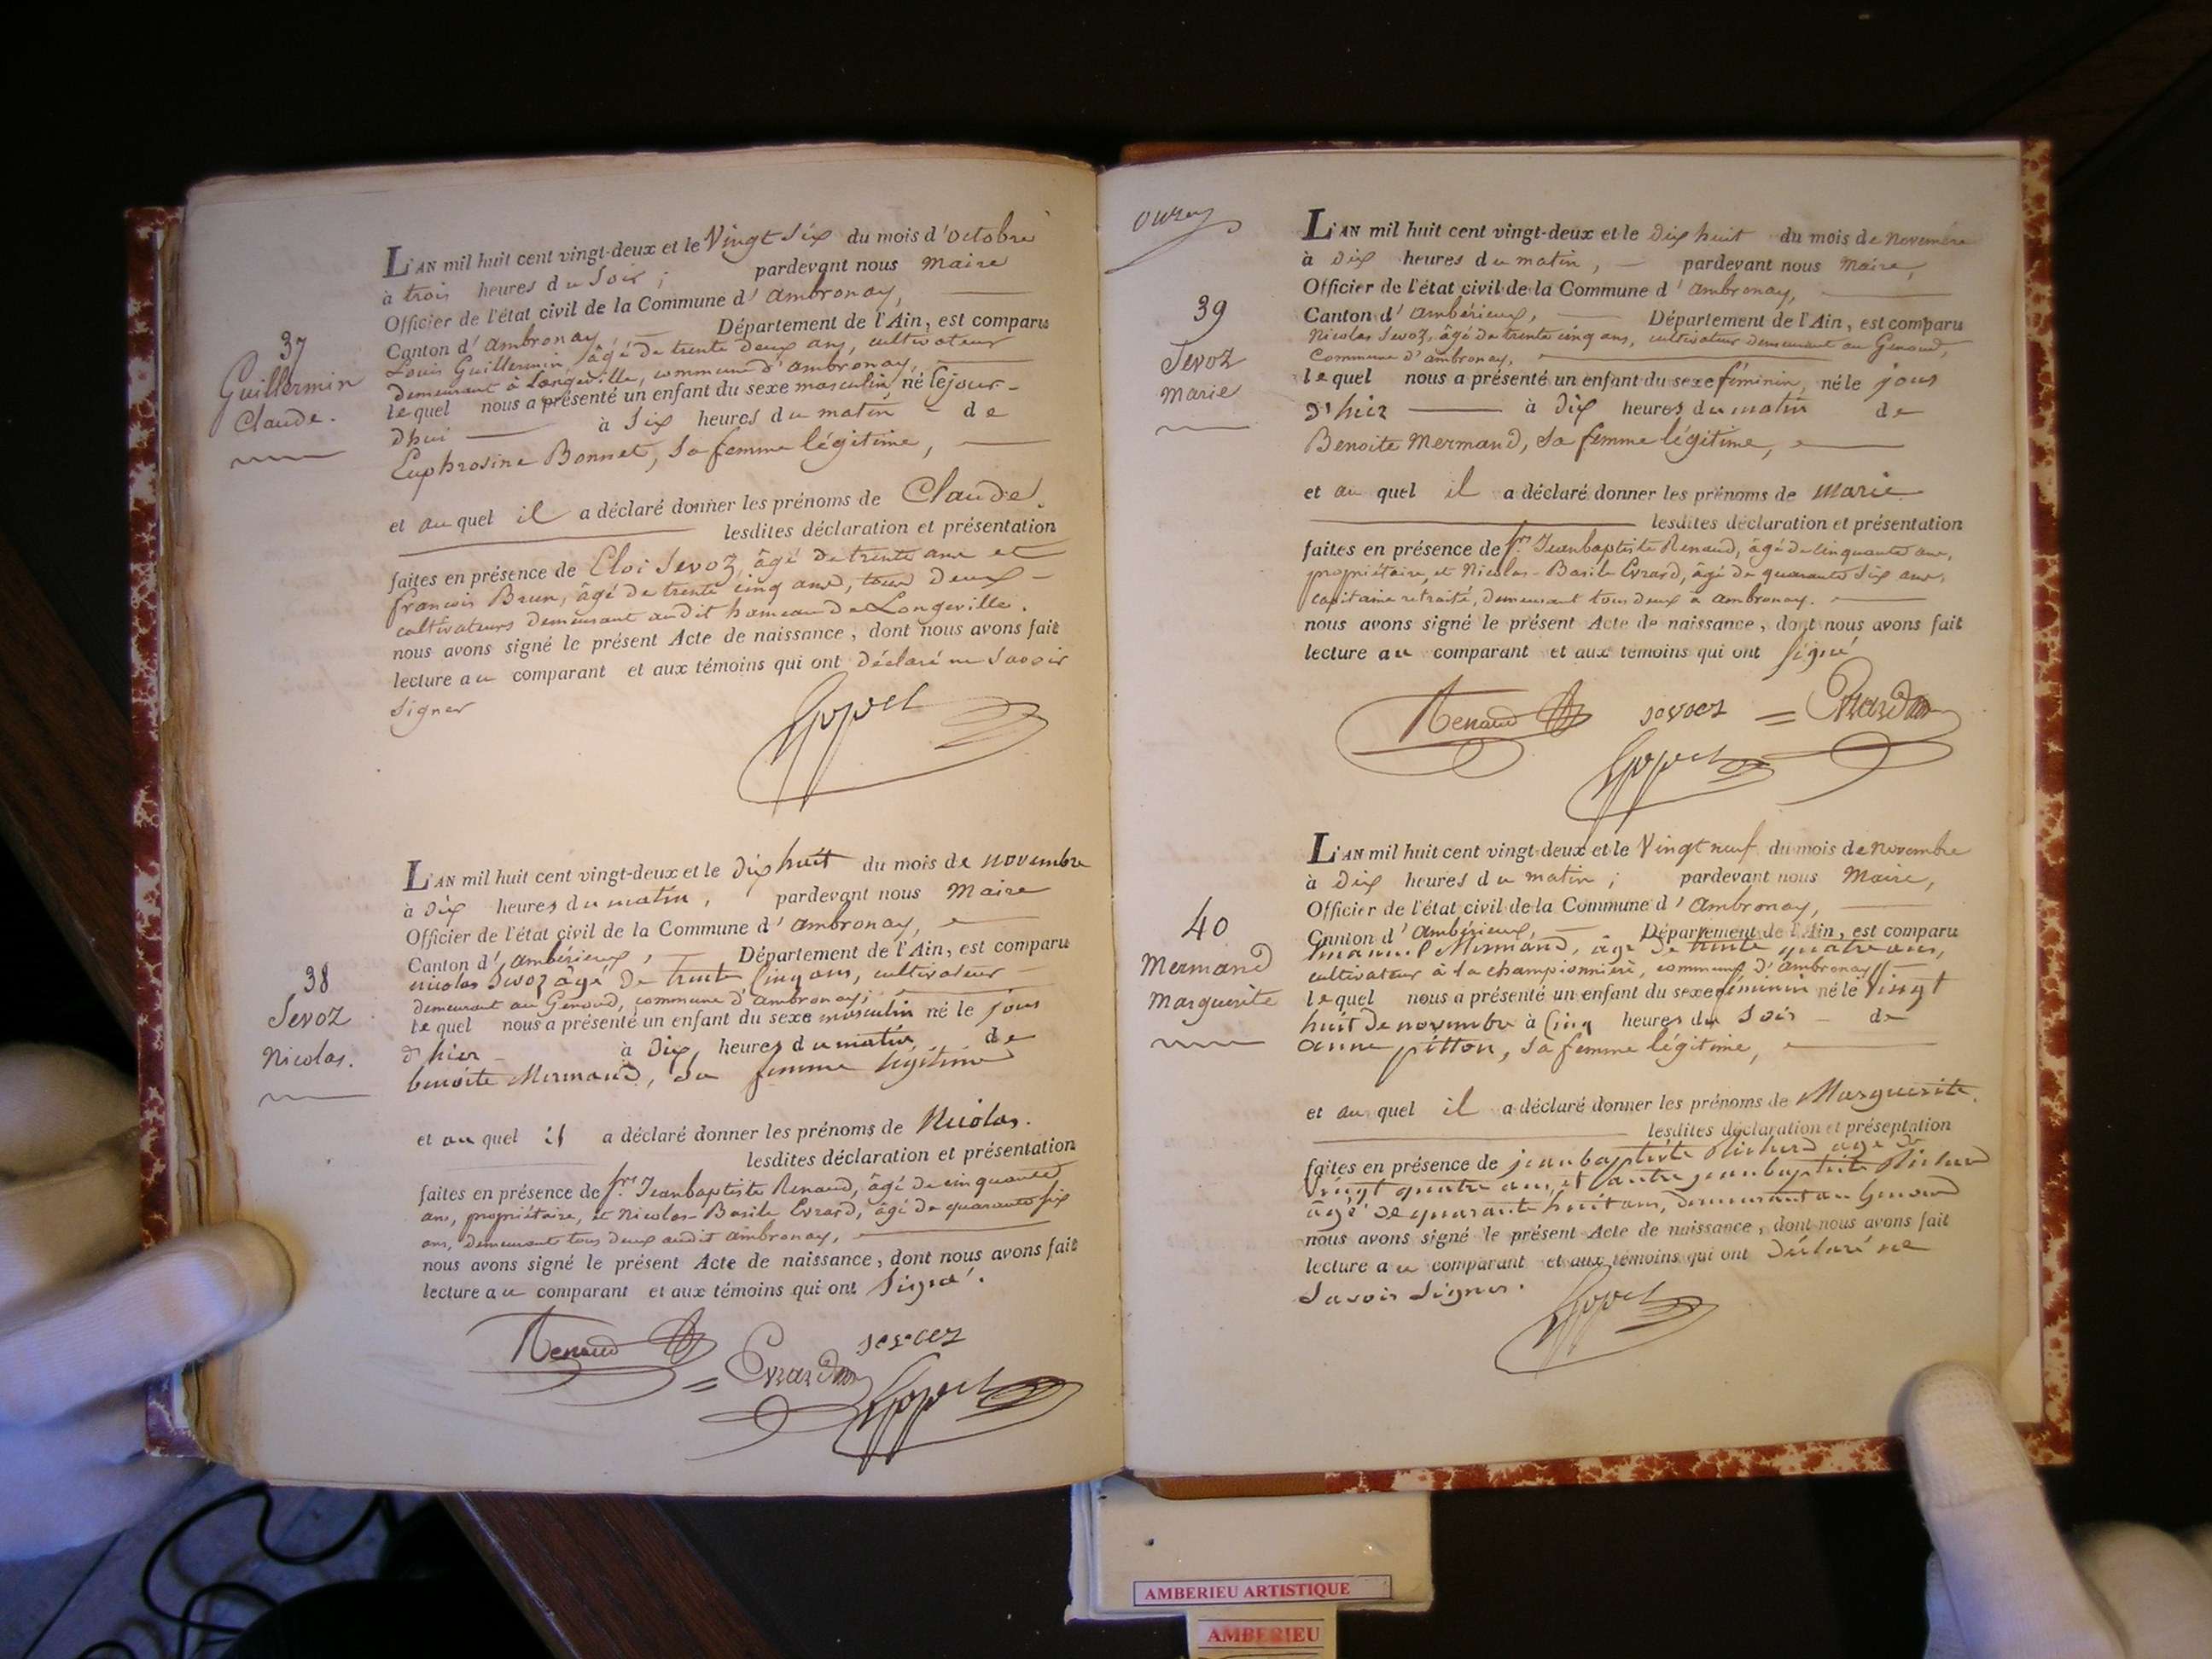 37
Guillermin
Claude.
L'AN mil huit cent vingt-deux et le Vingt six du mois d'octobre
à trois heures du Soir ; pardevant nous Maire
Officier de l'état civil de la Commune d'ambronay,
Canton d'ambronay Département de l'Ain, est comparu
Louis Guillermin, âgé de trente deux ans, cultivateur
demeurant à Longeville, commune d'ambronay,
lequel nous a présenté un enfant du sexe masculin né le jour-
d'hui à Six heures du matin de
Euphrosine Bonnet, Sa femme légitime,
et au quel il a déclaré donner les prénoms de Claude.
lesdites déclaration et présentation
faites en présence de Eloi Sevoz, âgé de trente ans et
françois Brun, âgé de trente cinq ans, tous deux
cultivateurs demeurant audit hameau de Longeville.
nous avons signé le présent Acte de naissance, dont nous avons fait
lecture au comparant et aux témoins qui ont déclaré ne Savoir
Signer
38
Sevoz
Nicolas.
L'AN mil huit cent vingt-deux et le dix huit du mois de novembre
à dix heures du matin, pardevant nous Maire
Officier de l'état civil de la Commune d'ambronay,
Canton d'ambérieux, Département de l'Ain, est comparu
nicolas Sevoz âgé de trente Cinq ans, cultivateur
demeurant au Genoud, commune d'ambronay;
lequel nous a présenté un enfant du sexe masculin né le jour
d'hier à Dix heures du matin de
benoite Mermand, Sa femme légitime
et au quel il a déclaré donner les prénoms de Nicolas.
lesdites déclaration et présentation
faites en présence de Sr. Jeanbaptiste Renaud, âgé de cinquante
ans, propriétaire, et Nicolas-Basile Evrard, âgé de quarante six
ans, demeurants tous deux audit ambronay,
nous avons signé le présent Acte de naissance, dont nous avons fait
lecture au comparant et aux témoins qui ont Signé.
Renaud sevoez
Evrard
39
Sevoz
Marie
L'AN mil huit cent vingt-deux et le dix huit du mois de novembre
à Dix heures du matin, pardevant nous Maire,
Officier de l'état civil de la Commune d'ambronay,
Canton d'ambérieux, Département de l'Ain, est comparu
Nicolas Sevoz, âgé de trente cinq ans, cultivateur demeurant au Genoud,
Commune d'ambronay.
lequel nous a présenté un enfant du sexe féminin, né le jour
d'hier à Dix heures du matin de
Benoite Mermand, Sa femme légitime,
et au quel il a déclaré donner les prénoms de Marie
lesdites déclaration et présentation
faites en présence de Sr. Jeanbaptiste Renaud, âgé de cinquante ans,
propriétaire, et Nicolas-Basile Evrard, âgé de quarante six ans,
capitaine retraité, demeurant tous deux à ambronay.
nous avons signé le présent Acte de naissance, dont nous avons fait
lecture au comparant et aux témoins qui ont Signé
Renaud sevoez Evrard
40
Mermand
Marguerite
L'AN mil huit cent vingt-deux et le Vingt neuf du mois de novembre
à Dix heures du matin ; pardevant nous Maire,
Officier de l'état civil de la Commune d'ambronay,
Canton d'ambérieux, Département de l'Ain, est comparu
Emanuel Mermand, âgé de trente quatre ans,
cultivateur à la championnière, commune d'ambronay
lequel nous a présenté un enfant du sexe féminin né le Vingt
huit de novembre à Cinq heures du Soir de
anne pitton, Sa femme légitime,
et au quel il a déclaré donner les prénoms de Marguerite.
lesdites déclaration et présentation
faites en présence de jeanbaptiste Richerd âgé de
Vingt quatre ans, et l'autre jeanbaptiste Richerd
âgé de quarante huit ans, demeurant au Genoud
nous avons signé le présent Acte de naissance, dont nous avons fait
lecture au comparant et aux témoins qui ont déclaré ne
Savoir Signer.
AMBERIEU ARTISTIQUE
AMBERIEU